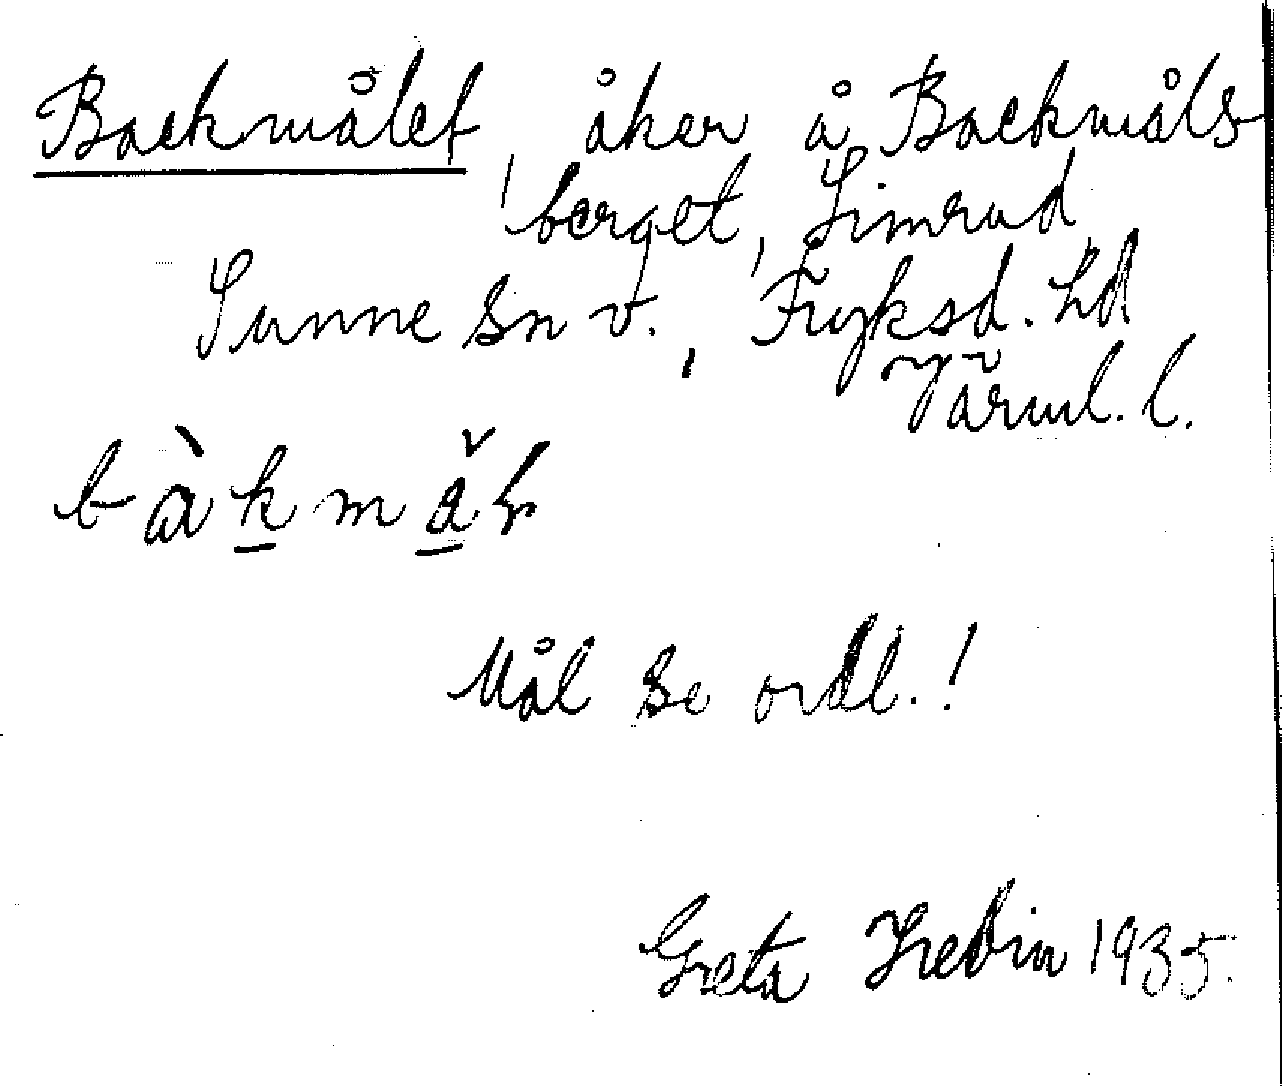 Backmålet, åker å Backmåls-
berget, Simrud
Sunne sn v., Fryksd. hd
Värml. l.
Mål se ordl.!
Greta Hedin 1935.